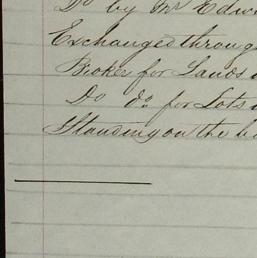 Do by Mr Edw
Exchanged throug
Broker for Lands
Do do for Lots
Standing on the b